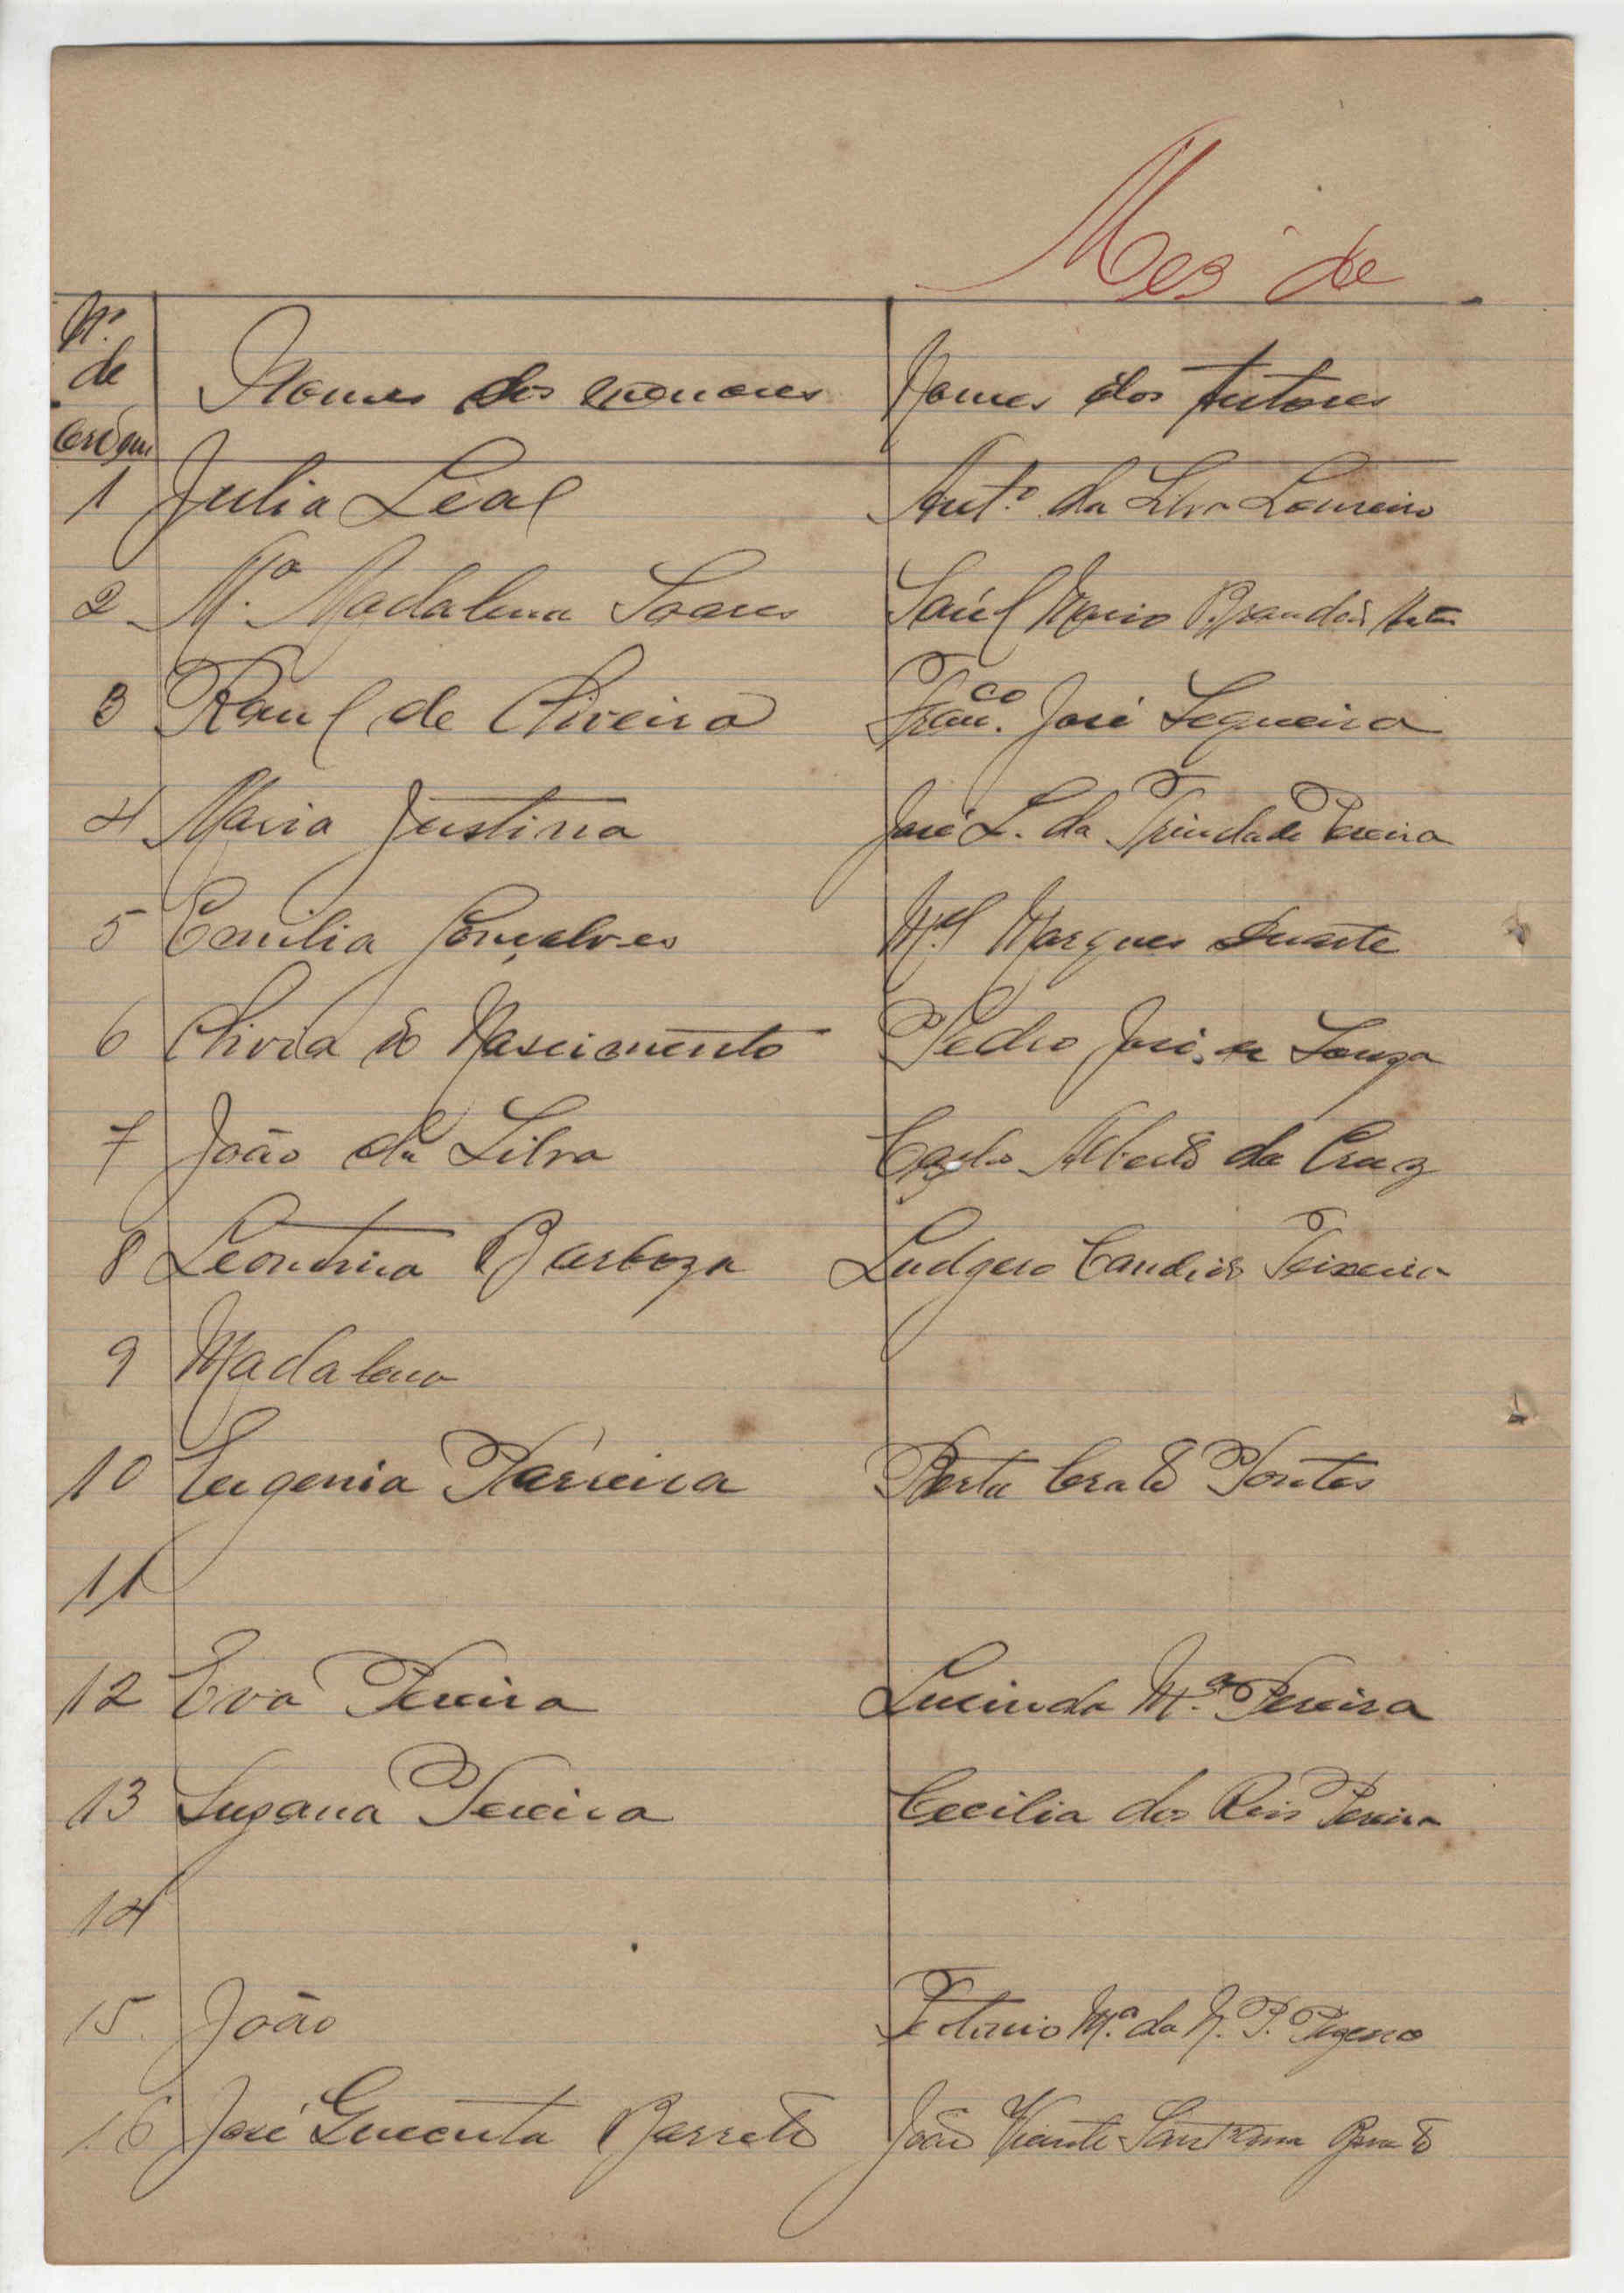 Mez de
Nº
de
Ordem
Nomes dos menores Nomes dos tutores
1 Julia Leal Antº da Silva Loureiro
2 Mª Madalena Soares Saúl Mario Brandão
3 Raul de Oliveira Franco. José Sequeira
4 Maria Justina José L. da Trindade Pereira
5 Emilia Gonçalves Mel Marques Duarte
6 Olivia do Nascimento Pedro José de Souza
7 João da Silva Carlos Alberto da Cruz
8 Leontina Barboza Ludgero Candido Teixeira
9 Madalena
10 Eugenia Parreira Berta Crato Fontes
11
12 Eva Pereira Lucinda Mª Pereira
13 Suzana Pereira Cecilia dos Reis Pereira
14
15 João Mª da N. P.
16 José Barreto João Vicente Sant'Anna